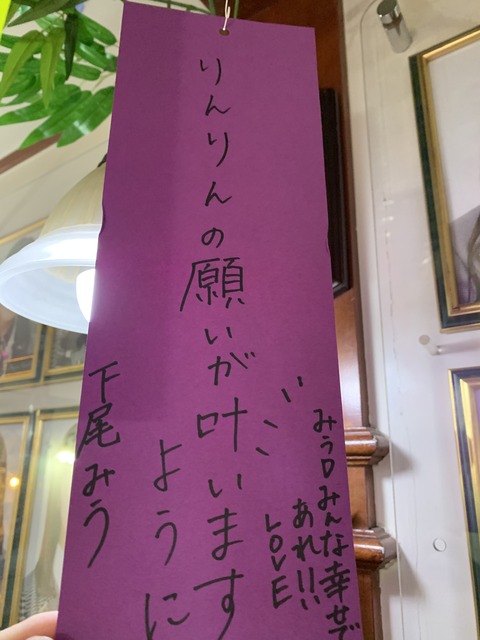 りんりんの願いが叶います
ように
下尾みう
みうロみんな幸せで
あれ!!
LOVE